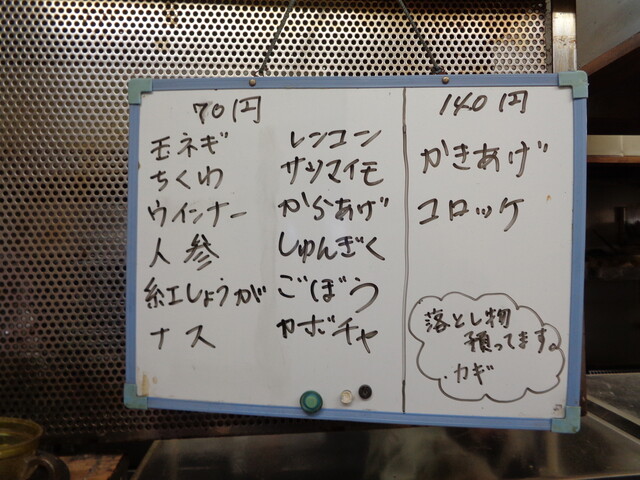 70円
玉ネギ
ちくわ
ウインナー
人参
紅しょうが
ナス
レンコン
サツマイモ
からあげ
しゅんぎく
ごぼう
カボチャ
140円
かきあげ
コロッケ
落とし物
預ってます。
・カギ